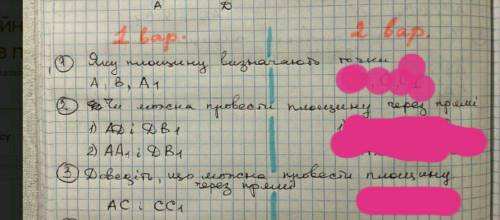 А Д
1 вар. 2 вар.
1 Яку площину визначають точки
А, В, А1
2 Чи можна провести площину через прямі
1) АД і ДВ1
2) АА1 і ДВ1
3 Доведіть, що можна провести площину
через прямі
АС і СС1